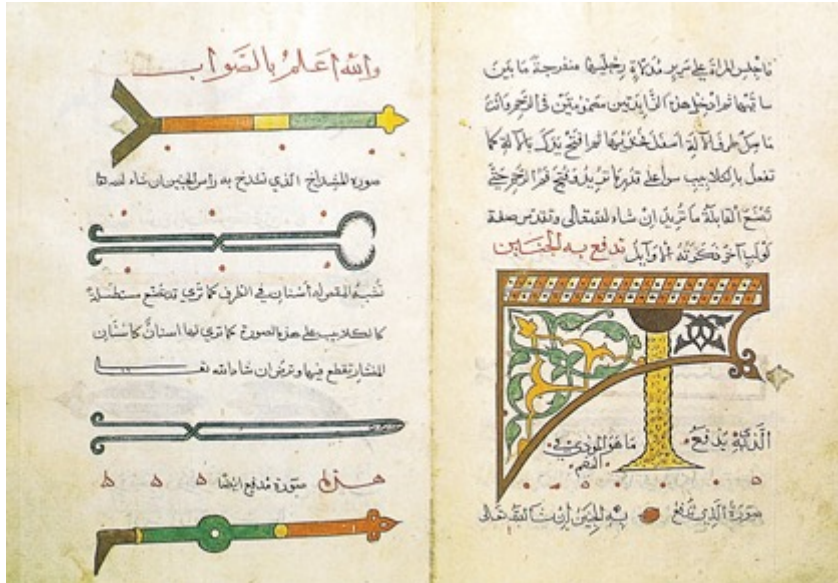 فاجلس المراة على سرير مدلاة رجليها منفرجة ما بين
ساقيها ثم ادخل هذه الزايدتين مضمومتين في الرحم وانت
ماسك طرف الآلة اسفل فخذيها ثم افتح يدك بالآلة كما
تفعل بالكلاليب سواء على قدر ما تريد وفتح فم الرحم حتى
تصنع القابلة ما تريد ان شاء الله تعالى وتقدس صفة
لولب آخر ذكرته الاوايل تدفع به الجنين
الذي يدفع
صورة الذي تدفع به الجنين إن شا الله تعالى
والله اعلم بالصواب
صورة المشداخ الذي تشدخ به راس الجنين ان شاء الله
تشبه المقص له أسنان في الطرف كما تري وقد تصنع مستطيلة
كالكلاليب على هذه الصورة كما تري لها اسنان كاسنان
المنشار تقطع فيها وترض ان شاء الله
هذه صورة مدفع ايضا